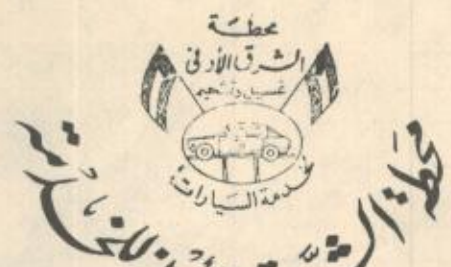 محطة
الشرق الأدنى
غسيل وتشحيم
لخدمة السيارات
محطة الشرق